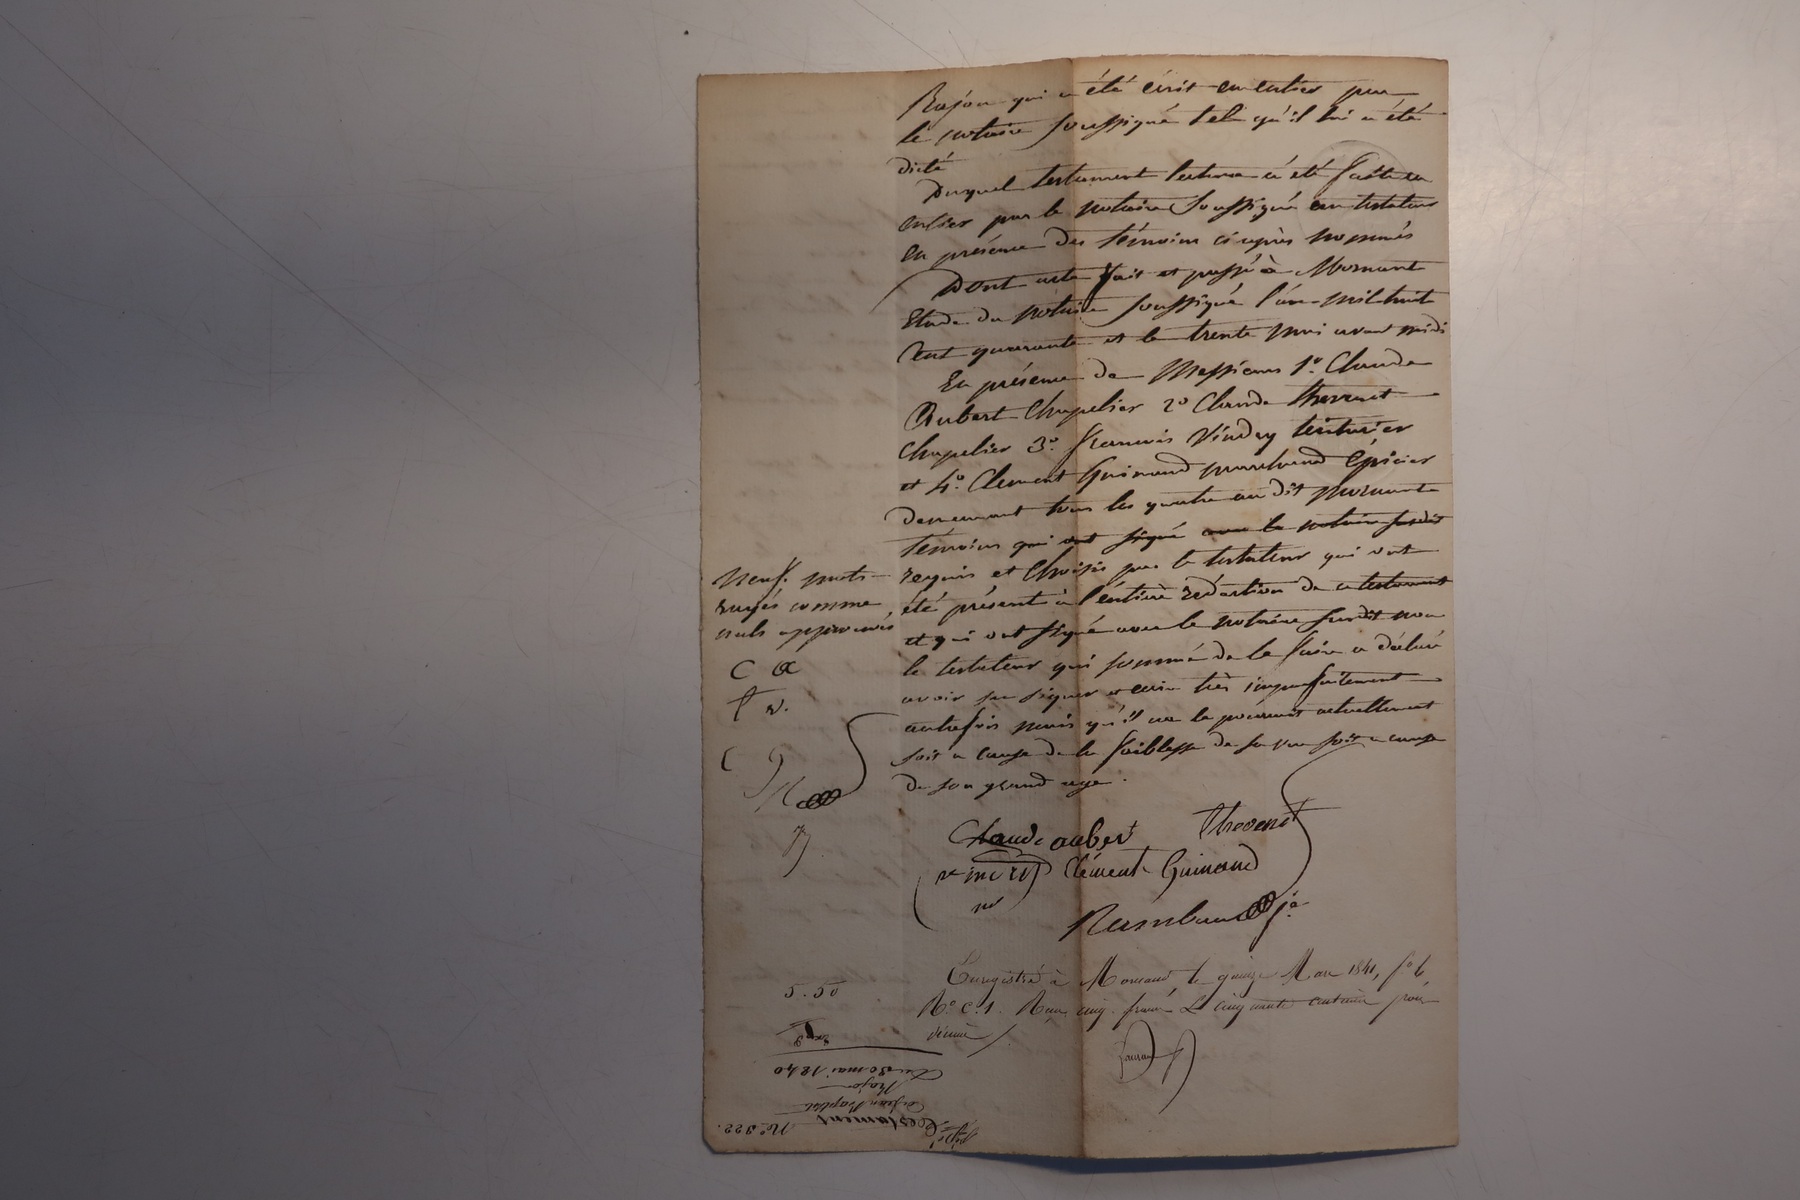 Rajon qui a été écrit en entier par
le notaire soussigné tel qu'il lui a été
dicté
Duquel testament lecture a été faite en
entier par le notaire soussigné au testateur
en présence des témoins ci après nommés
Dont acte fait et passé à Mornant
Etude du notaire soussigné l'an mil huit
cent quarante et le trente mai avant midi
En présence de Messieurs 1º. Claude
Aubert Chapelier 2º Claude Thevenet
Chapelier 3º. francois Vindry teinturier
et 4º. Clement Guinand marchand Epicier
demeurant tous les quatre au dit Mornant
témoins qui ont signé avec le notaire susdit
requis et choisis par le testateur qui ont
été présent à l'entière rédaction de ce testament
et qui ont signé avec le notaire susdit non
le testateur qui sommé de le faire a déclaré
avoir su signer et écrire très imparfaitement
autrefois mais qu'il ne le pourrait actuellement
soit a cause de la faiblesse de sa vue soit a cause
de son grand age.
Neuf mots
rayés comme
nuls approuvés
C a
t v.
C G
R
Claude aubert Thevenet
vindry Clément Guinand
Rambaud je
Enregistré à Mornant le quinze Mars 1841, fº 6
Rº cº 1. Reçu cinq francs et cinquante centimes pour
décime
5.50
Nº 322.
Testament
de Jean Baptiste
Rajon
du 30 mai 1840
Exp